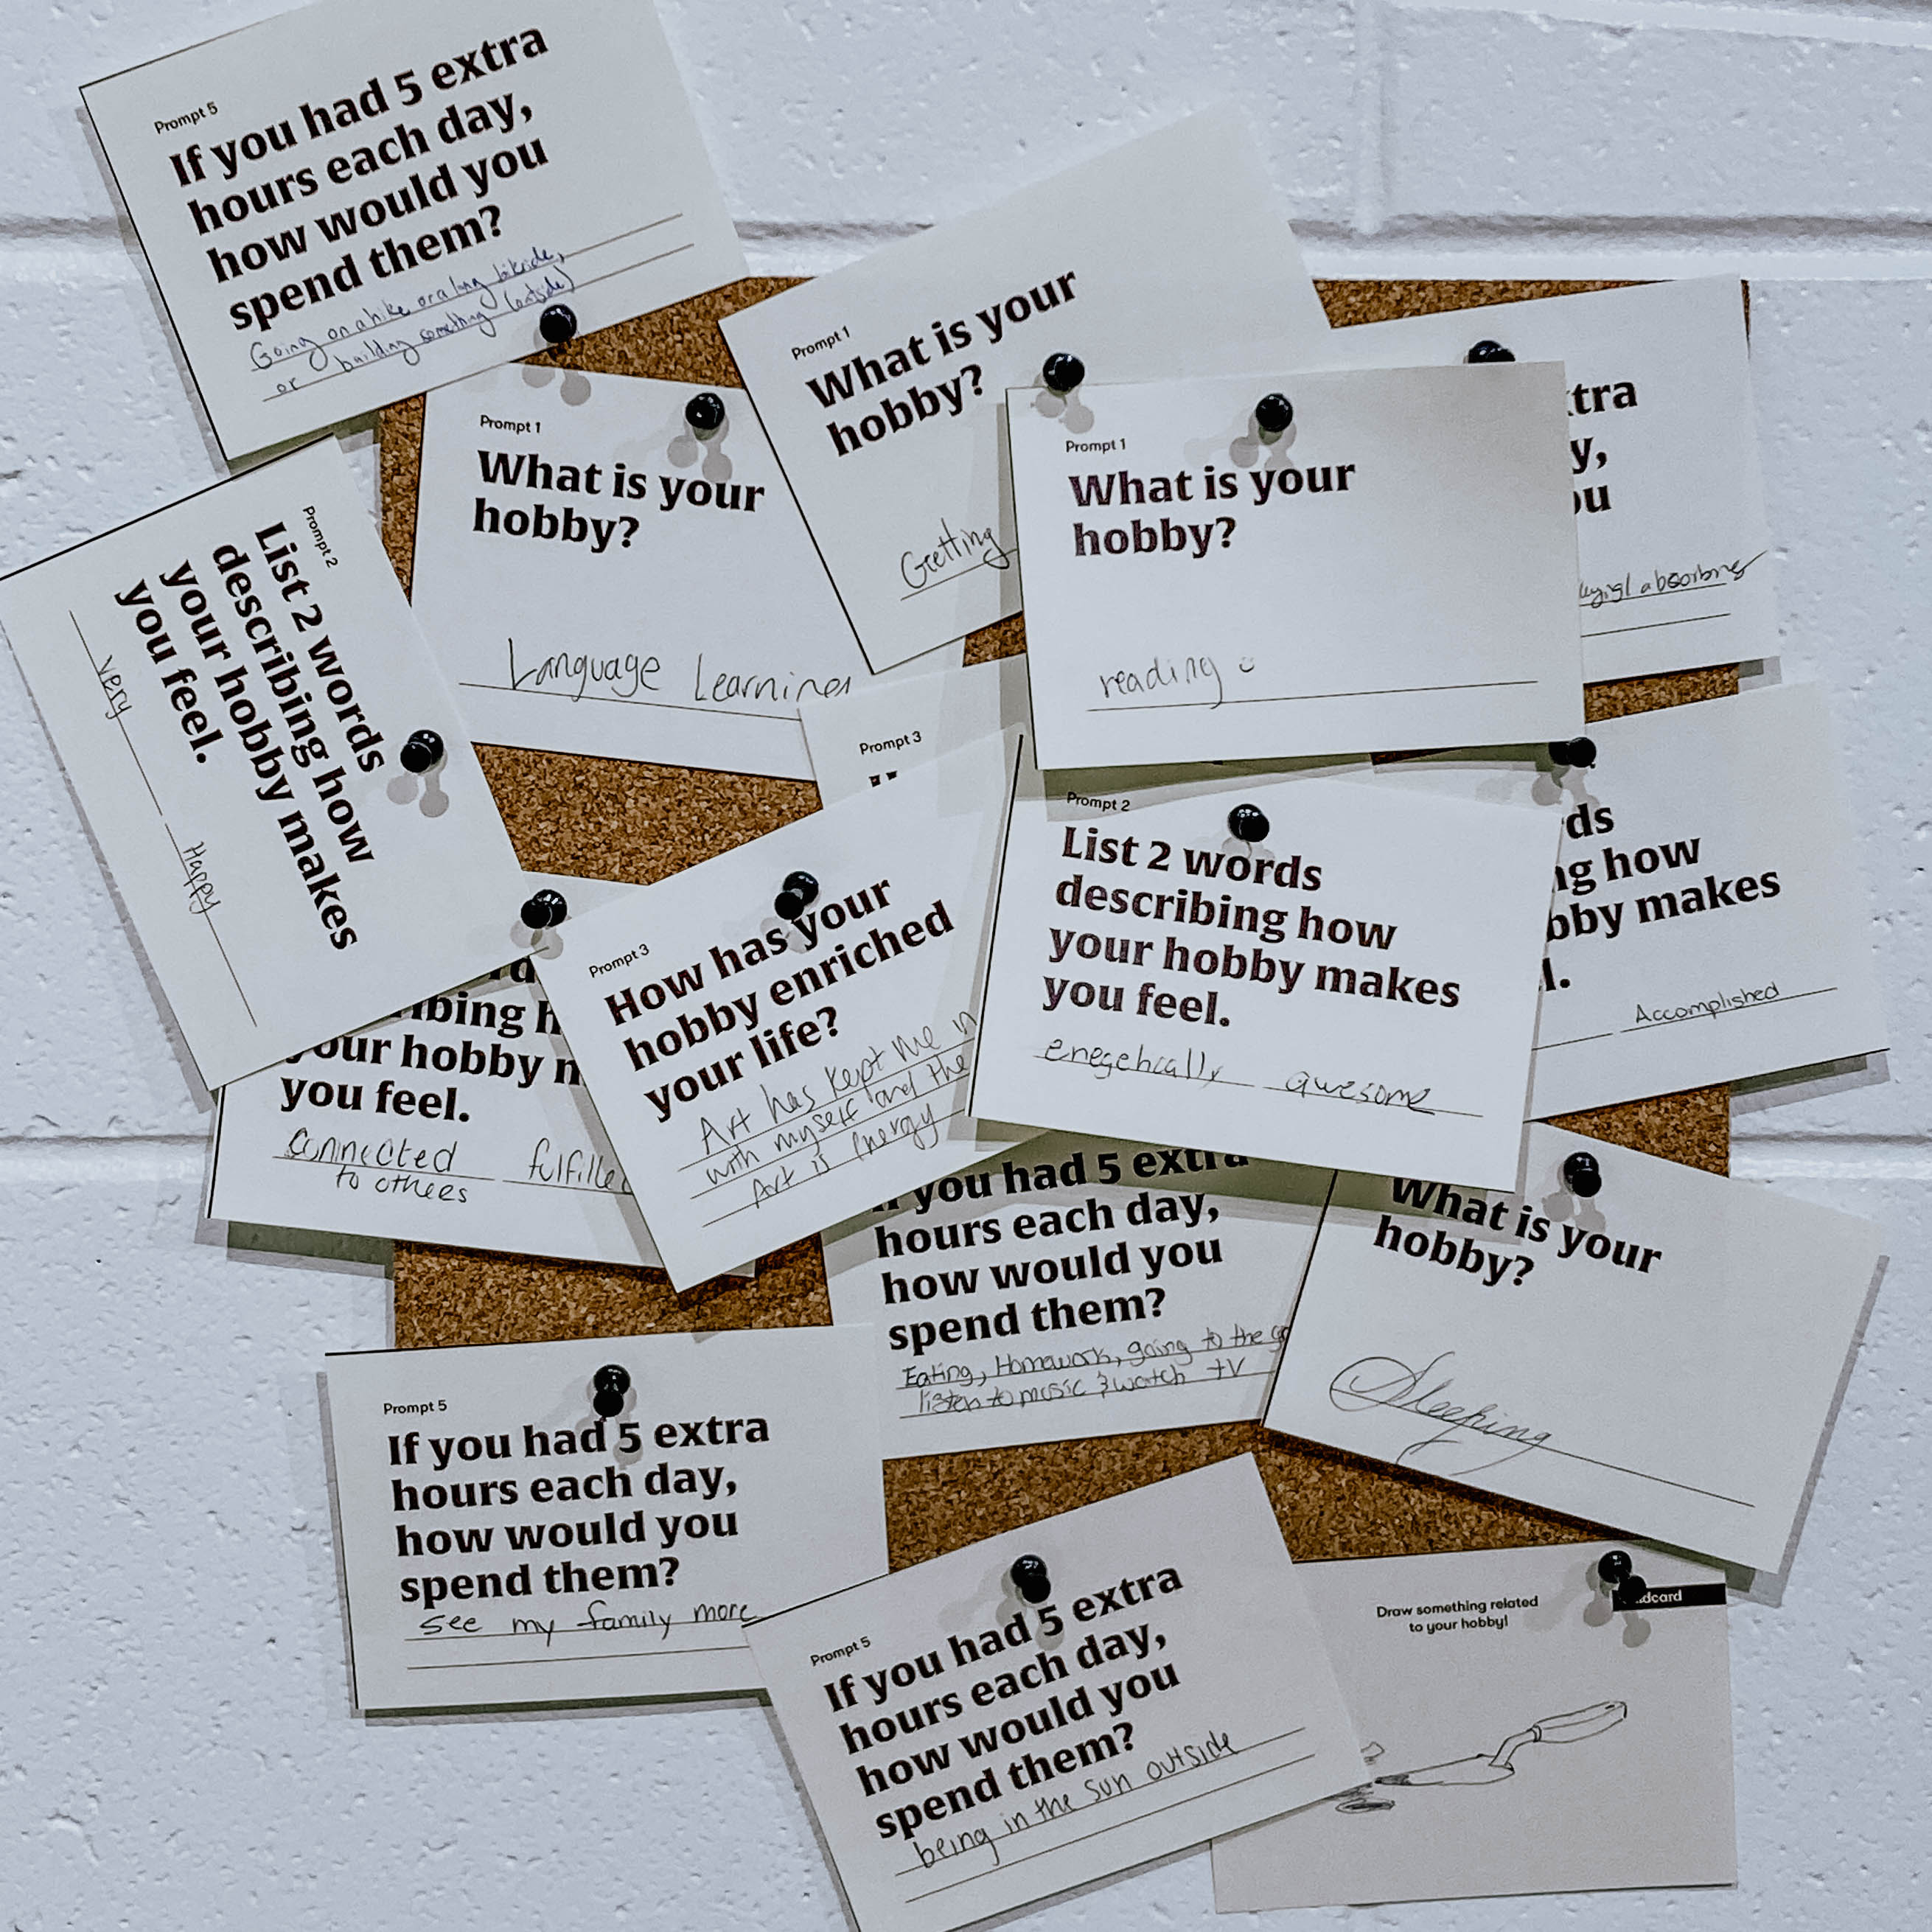 Prompt 5
If you had 5 extra
hours each day,
how would you
spend them?
Going on a hike or a long bikeride,
or building something (outside)
Prompt 1
What is your
hobby?
Getting
Prompt 1
What is your
hobby?
Language Learning
Prompt 1
What is your
hobby?
reading
tra
y,
ou
absorbing
Prompt 2
List 2 words
describing how
your hobby makes
you feel.
very Happy
Prompt 3
Prompt 3
How has your
hobby enriched
your life?
Art has kept me in
with myself and the
Art is Energy
Prompt 2
List 2 words
describing how
your hobby makes
you feel.
enegetically awesome
ds
ng how
bby makes
l.
Accomplished
ibing h
your hobby m
you feel.
connected fulfilled
to others
If you had 5 extra
hours each day,
how would you
spend them?
Eating, Homework, going to the
listen to music & watch TV
What is your
hobby?
Sleeping
Prompt 5
If you had 5 extra
hours each day,
how would you
spend them?
see my family more
Prompt 5
If you had 5 extra
hours each day,
how would you
spend them?
being in the sun outside
dcard
Draw something related
to your hobby!